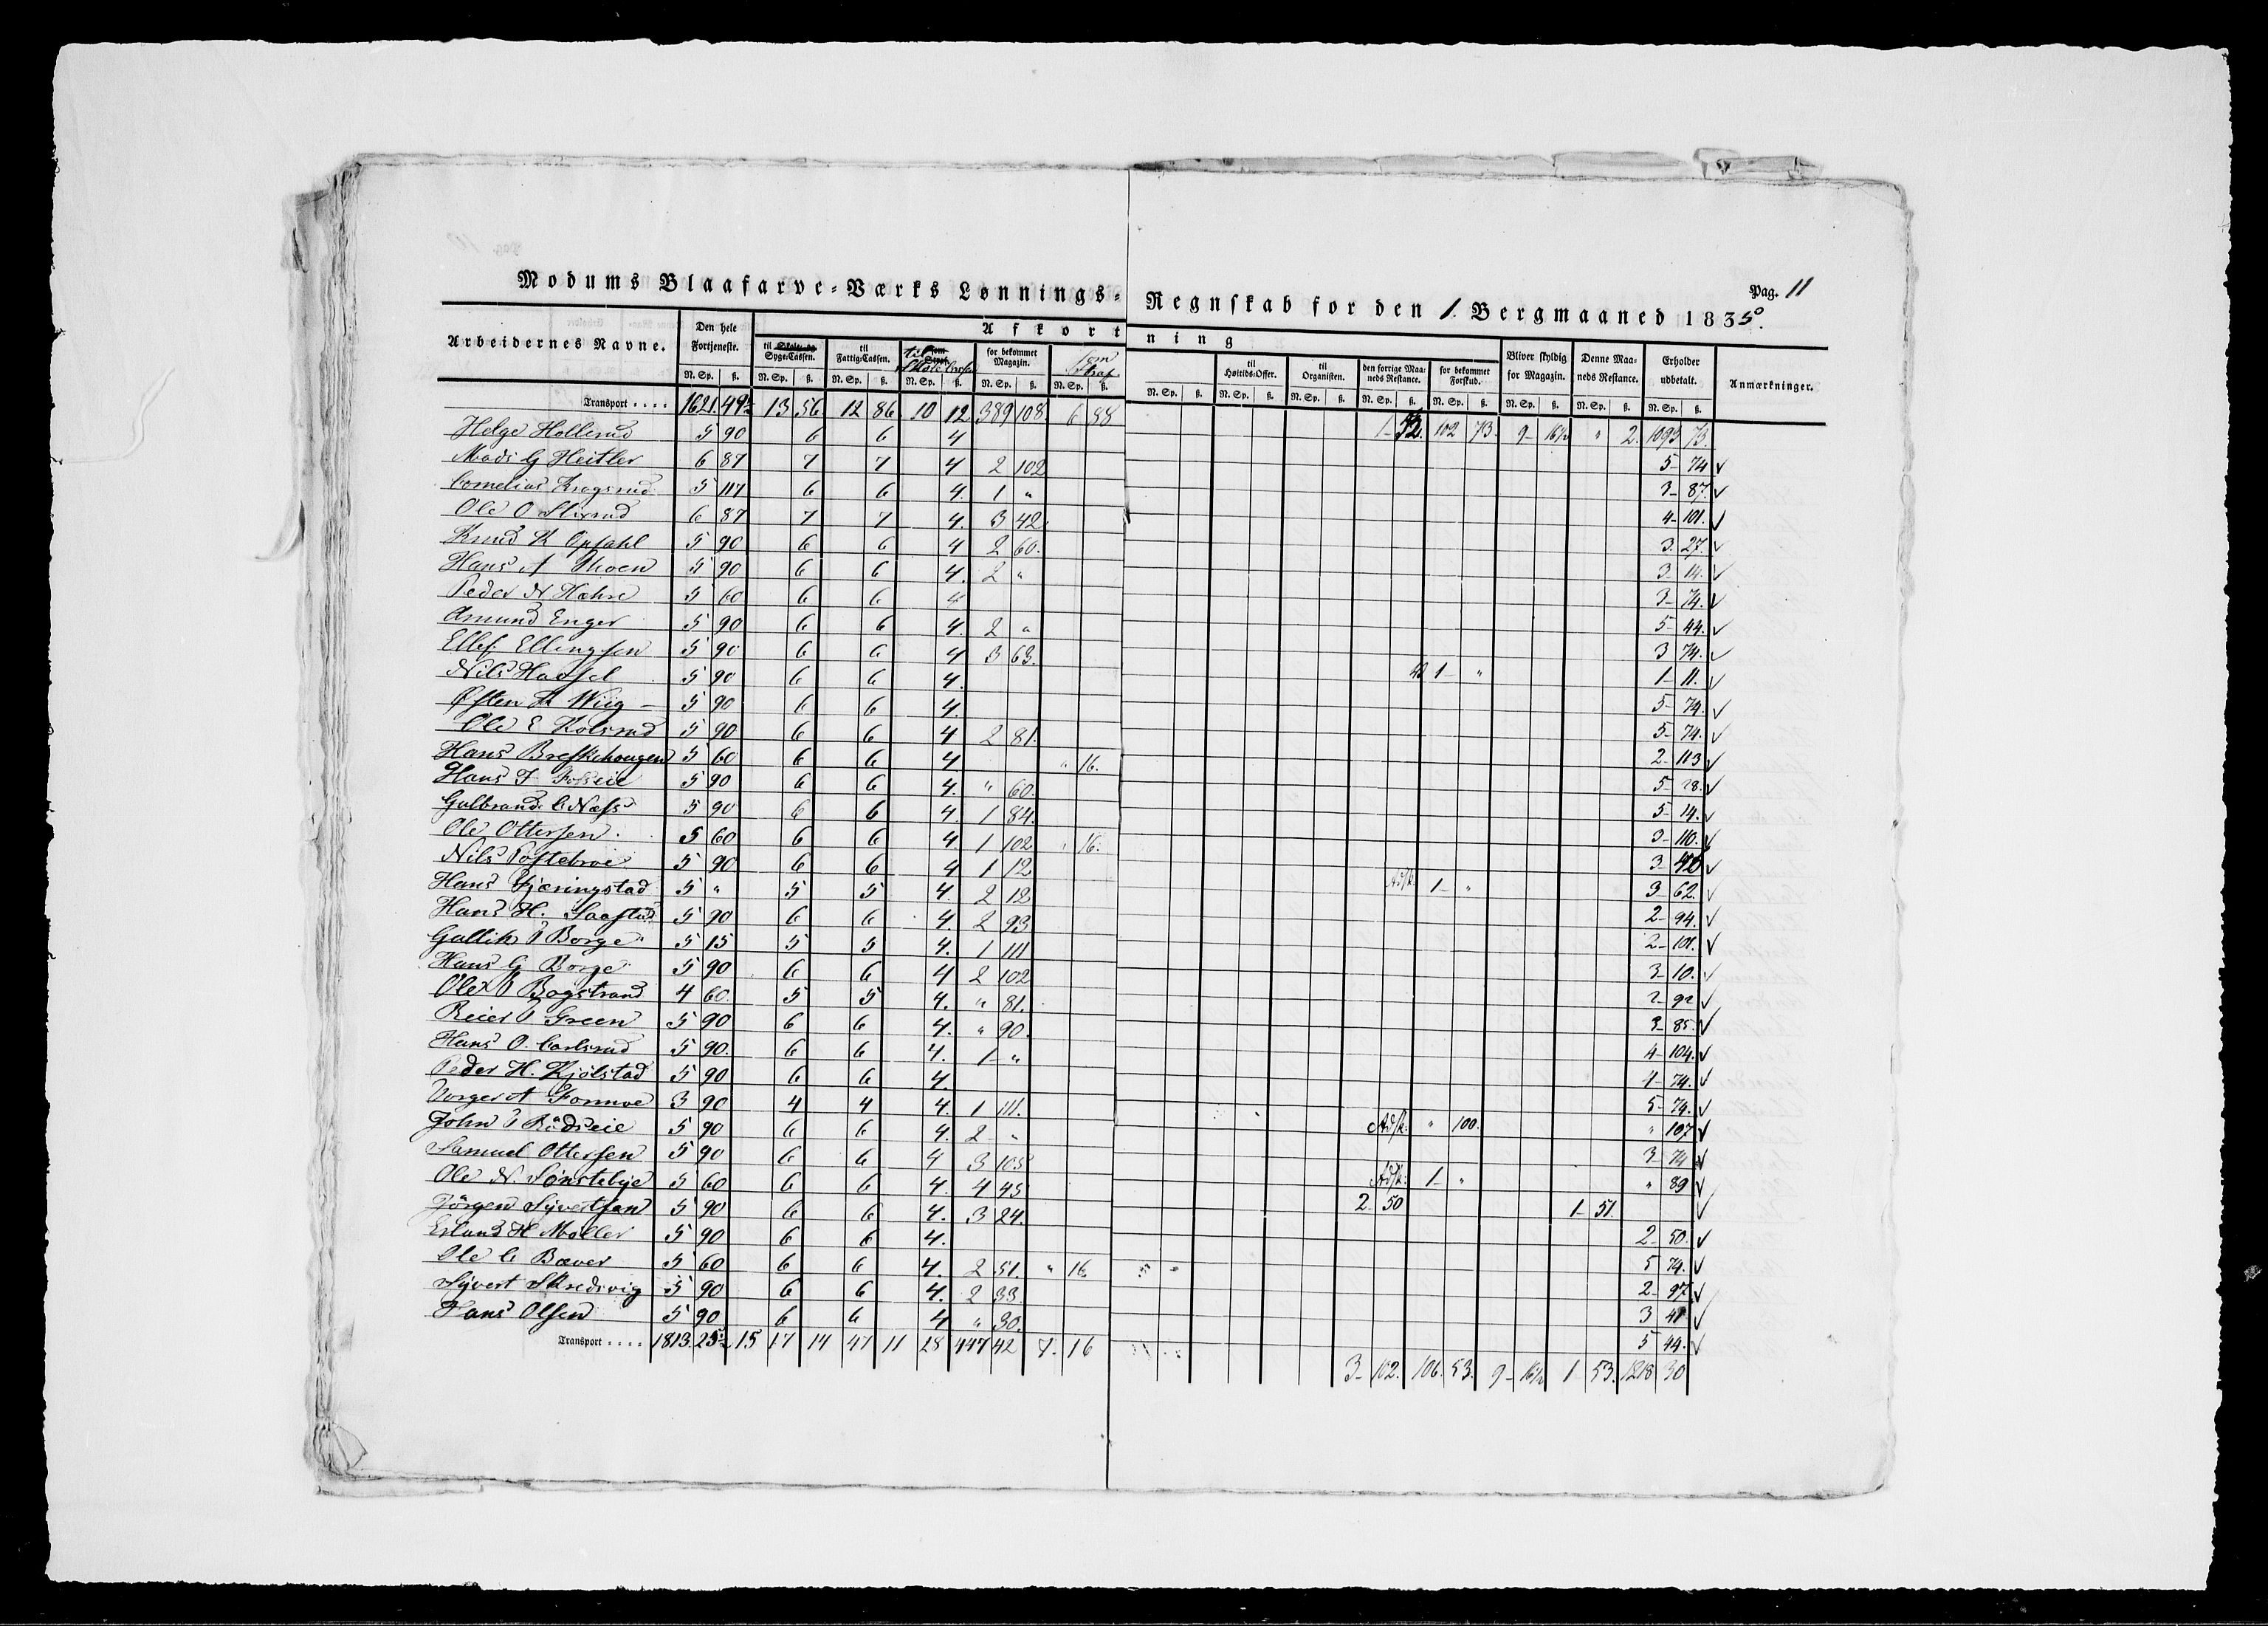 Pag. 11
Modums Blaafarve-Værks Lønnings-Regnskab for den 1. Bergmaaned 1835.
Afkortning
Arbeidernes Navne. | Den hele Fortjeneste. | til Skole- og Syge-Cassen. | til Fattig-Cassen. | til Skole Cassen | for bekommet Magazin. | som Straf | til Høitids-Offer. | til Organisten. | den forrige Maaneds Restance. | for bekommet Forskud. | Bliver skyldig for Magazin. | Denne Maaneds Restance. | Erholder udbetalt. | Anmærkninger.
N. Sp. ß. N. Sp. ß. N. Sp. ß. N. Sp. ß. N. Sp. ß. N. Sp. ß. N. Sp. ß. N. Sp. ß. N. Sp. ß. N. Sp. ß. N. Sp. ß. N. Sp. ß. N. Sp. ß. N. Sp. ß.
Transport .... 1621. 49½ 13 56 12 86 10 12 389 108 6 88 1- 52. 102 73. 9- 16½ " 2. 1093 73.
Helge Hollerud 5 90 6 6 4 5- 74 ✓
Mads G Heitler 6 87 7 7 4 2 102 3- 87. ✓
Cornelius Krogsrud 5 117 6 6 4. 1 " 4- 101. ✓
Ole O Slirud 6 87 7 7 4. 3 42. 3. 27. ✓
Knud K Opsahl 5 90 6 6 4 2 60. 3- 14. ✓
Hans A Moen 5 90 6 6 4. 2 " 3- 74. ✓
Peder N Hæhre 5 60 6 6 4 5- 44. ✓
Amund Enger 5 90 6 6 4. 2 " 3 74. ✓
Ellef Ellingsen 5 90 6 6 4 3 63. 1- " 1- 11. ✓
Nils Haafel 5 90 6 6 4. 5- 74. ✓
Østen A Wiig 5 90 6 6 4. 5- 74. ✓
Ole E Kolsrud 5 90 6 6 4 2 81. 2- 113 ✓
Hans Breskehougen 5 60 6 6 4 " 16. 5- 28. ✓
Hans F Fosseie 5 90 6 6 4. " 60. 5- 14. ✓
Gulbrand C Næss 5 90 6 6 4. 1 84. 3- 110. ✓
Ole Ottersen 5 60 6 6 4. 1 102 " 16. 3- 40 ✓
Nils Postebroe 5 90 6 6 4 1 12 Adsk. 1- " 3- 62. ✓
Hans Gjæringstad 5 " 5 5 4. 2 12 2- 94. ✓
Hans H. Saastad 5 90 6 6 4. 2 93 2- 101. ✓
Gullik P Borge 5 15 5 5 4. 1 111 3- 10. ✓
Hans G Borge 5 90 6 6 4 2 102 2- 92 ✓
Ole P Bogstrand 4 60. 5 5 4. " 81. 3- 85. ✓
Reier P Green 5 90 6 6 4. " 90. 4- 104. ✓
Hans O. Carlsrud 5 90. 6 6 4. 1- " 4- 74. ✓
Peder H. Kjölstad 5 90 6 6 4. 5- 74. ✓
Torger A Formoe 3 90 4 4 4. 1 111. Adsk. " 100. " 107 ✓
John P Rödseie 5 90 6 6 4. 2 " 3- 74 ✓
Samuel Ottersen 5 90 6 6 4 3 105 Adsk. 1- " " 89 ✓
Ole N. Sönstebye 5 60 6 6 4. 4 45 2 50 1- 51. ✓
Jörgen Syvertsen 5 90 6 6 4. 3 24. 2- 50. ✓
Erland H Möller 5 90 6 6 4. 5 74. ✓
Ole C Bæver 5 60 6 6 4. 2 51. " 16. 2- 97. ✓
Syvert Skredsvig 5 90 6 6 4. 2 33. 3 41 ✓
Hans Olsen 5 90 6 6 4 " 30. 5 44. ✓
Transport .... 1813. 25½ 15 17 14 47 11 28 447 42 7. 16 3- 102. 106. 53. 9- 16½ 1 53. 1218 30